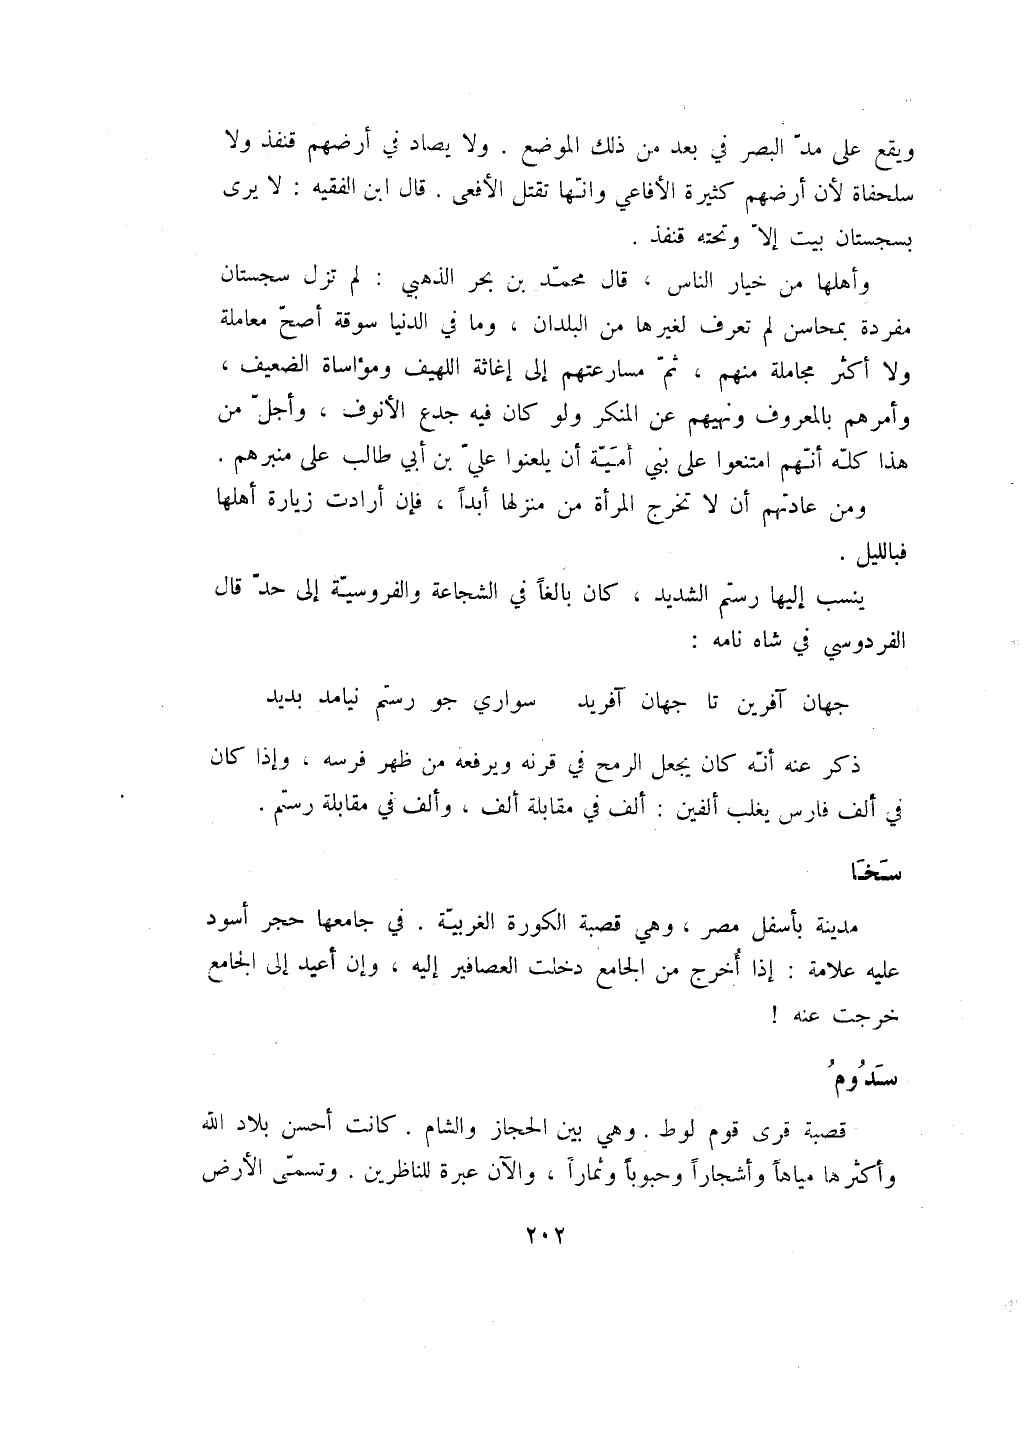 ويقع على مدّ البصر في بعد من ذلك الموضع . ولا يصاد في أرضهم قنفذ ولا
سلحفاة لأن أرضهم كثيرة الأفاعي وانّها تقتل الأفعى . قال ابن الفقيه : لا يرى
بسجستان بيت إلاّ وتحته قنفذ .
وأهلها من خيار الناس ، قال محمّد بن بحر الذهبي : لم تزل سجستان
مفردة بمحاسن لم تعرف لغيرها من البلدان ، وما في الدنيا سوقة أصحّ معاملة
ولا أكثر مجاملة منهم ، ثمّ مسارعتهم إلى إغاثة اللهيف ومؤاساة الضعيف ،
وأمرهم بالمعروف ونهيهم عن المنكر ولو كان فيه جدع الأنوف ، وأجلّ من
هذا كلّه أنّهم امتنعوا على بني أميّة أن يلعنوا عليّ بن أبي طالب على منبرهم .
ومن عادتهم أن لا تخرج المرأة من منزلها أبداً ، فإن أرادت زيارة أهلها
فبالليل .
ينسب إليها رستم الشديد ، كان بالغاً في الشجاعة والفروسيّة إلى حدّ قال
الفردوسي في شاه نامه :
جهان آفرين تا جهان آفريد سواري جو رستم نيامد بديد
ذكر عنه أنّه كان يجعل الرمح في قرنه ويرفعه من ظهر فرسه ، وإذا كان
في ألف فارس يغلب ألفين : ألف في مقابلة ألف ، وألف في مقابلة رستم .
سَخَا
مدينة بأسفل مصر ، وهي قصبة الكورة الغربيّة . في جامعها حجر أسود
عليه علامة : إذا أُخرج من الجامع دخلت العصافير إليه ، وإن أعيد إلى الجامع
خرجت عنه !
سَدُومُ
قصبة قرى قوم لوط . وهي بين الحجاز والشام . كانت أحسن بلاد الله
وأكثرها مياهاً وأشجاراً وحبوباً وثماراً ، والآن عبرة للناظرين . وتسمّى الأرض
٢٠٢